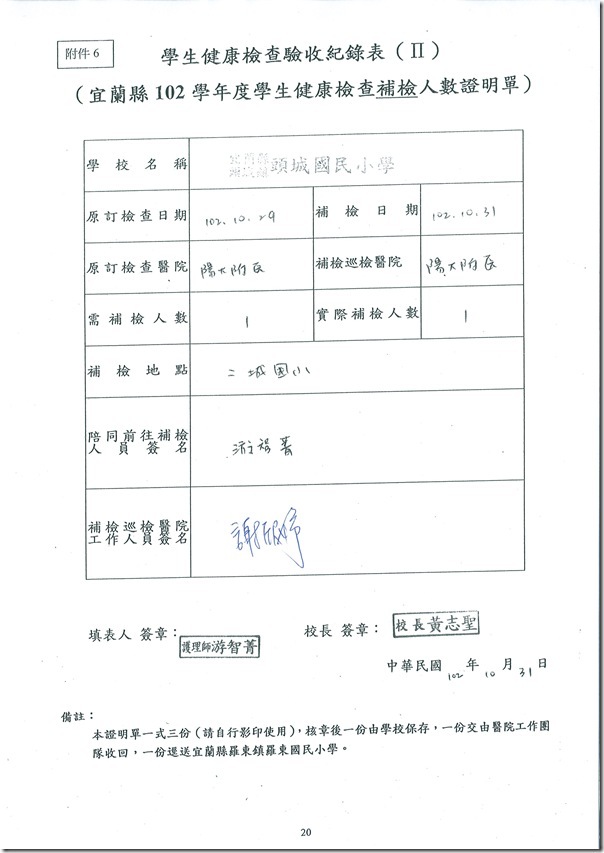 附件 6
學生健康檢查驗收紀錄表(Ⅱ)
(宜蘭縣 102 學年度學生健康檢查補檢人數證明單)
學校名稱 宜蘭縣頭城鎮 頭城國民小學
原訂檢查日期 102.10.29 補檢日期 102.10.31
原訂檢查醫院 陽大附醫 補檢巡檢醫院 陽大附醫
需補檢人數 1 實際補檢人數 1
補檢地點 二城國小
陪同前往補檢
人員簽名
游智菁
補檢巡檢醫院
工作人員簽名
填表人 簽章: 護理師游智菁 校長 簽章: 校長黃志聖
中華民國 102 年 10 月 31 日
備註:
本證明單一式三份(請自行影印使用),核章後一份由學校保存,一份交由醫院工作團
隊收回,一份遞送宜蘭縣羅東鎮羅東國民小學。
20